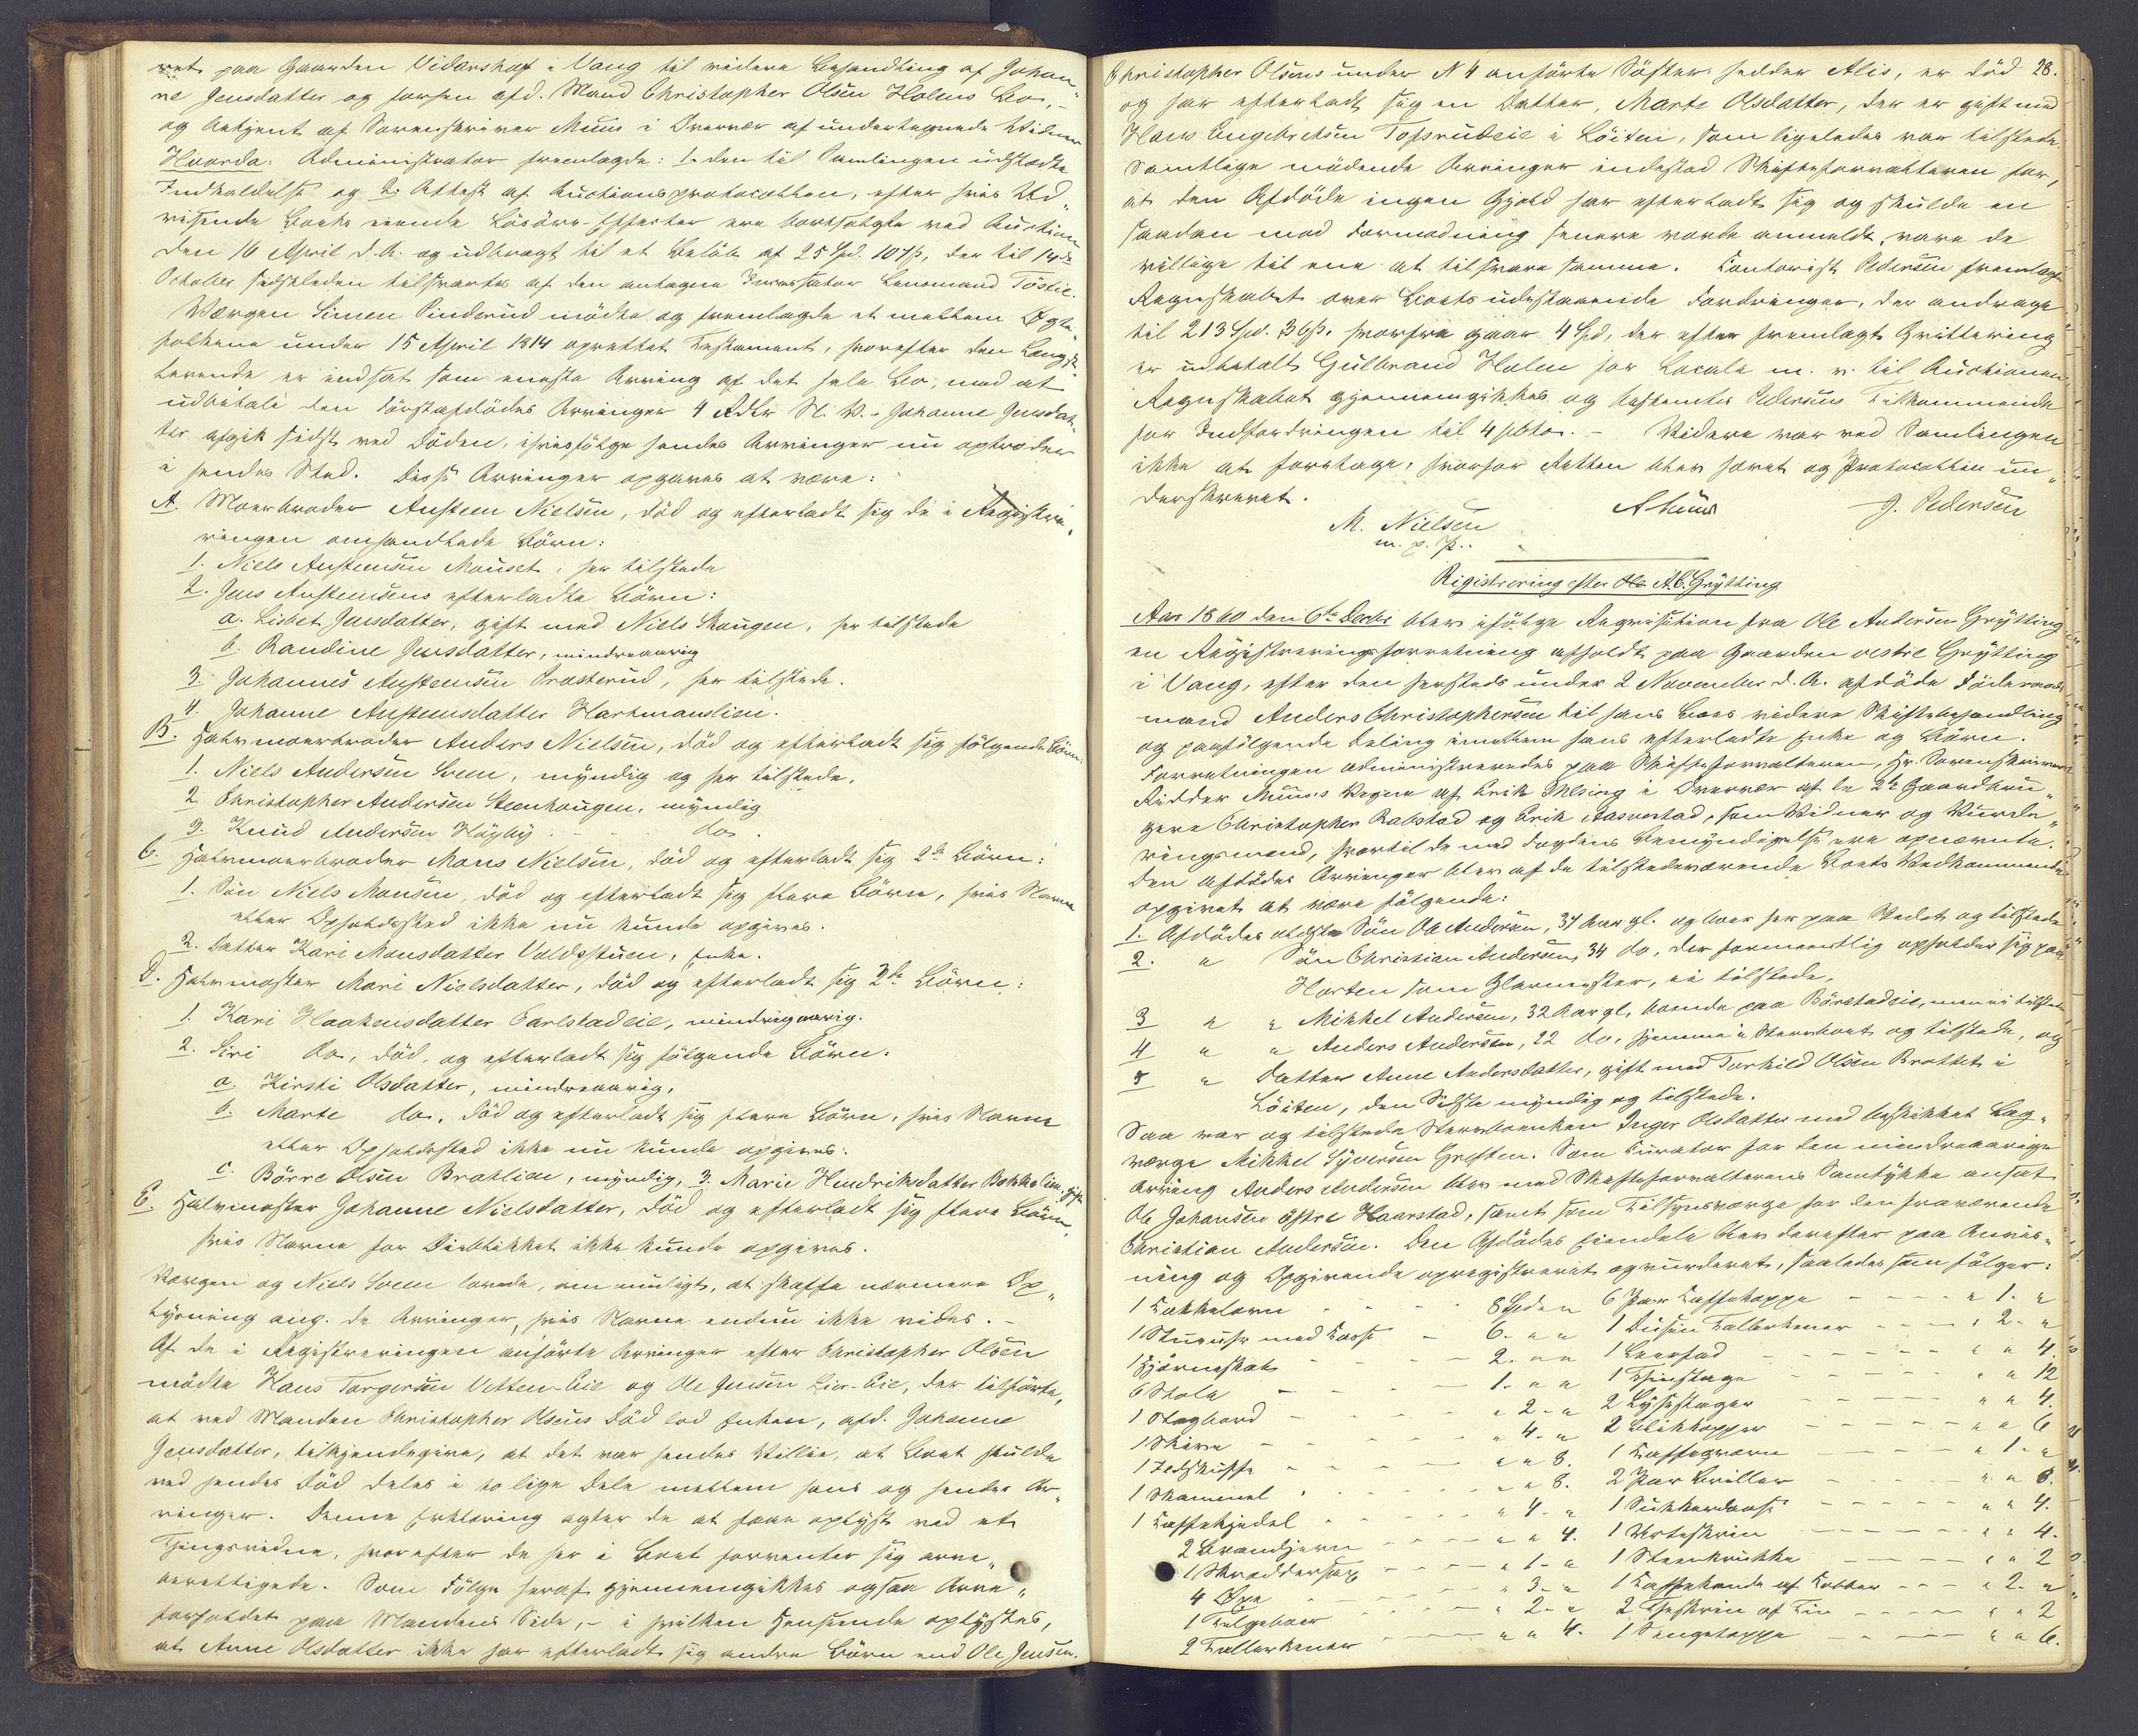 ret paa Gaarden Vidarshof i Vang til videre Behandling af Johan¬
ne Jensdatter og forhen afd. Mand Christopher Olsen Holens Bo, –
og betjent af Sorenskriver Muus i Overvær af undertegnede Vidner
Hvorda: Administrator fremlagde: 1. den til Samlingen udstædte
Indkaldelse og 2. Attest af Auctionsprotocollen, efter hvis Ud¬
visende Boets eiende Lösöre-Effecter ere bortsolgte ved Auction
den 16 April d. A. og udbragt til et Belöb af 25 Spd. 107 s, der til 14de
October sidstleden tilsvartes af den antagne Incassator Lensmand Töstie.
Værgen Simen Pinderud mödte og fremlagde et mellem Ægte¬
folkene under 15 April 1814 oprettet Testament, hvorefter den Længst¬
levende er indsat som eneste Arving af det hele Bo, mod at
udbetale den förstafdödes Arvinger 4 Rdlr N. V. – Johanne Jensdat¬
ter afgik sidst ved Döden, ihvisfölge hendes Arvinger nu optræder
i hendes Sted. Disse Arvinger opgaves at være:
A. Moerbroder Austeen Nielsen, död og efterladt sig de i Registre¬
ringen omhandlede Börn:
1. Niels Austeensen Mouset, her tilstede
2. Jens Austeensens efterladte Börn:
a. Lisbet Jensdatter, gift med Niels Haugen, her tilstede
b. Randine Jensdatter, mindreaarig
3. Johannes Austeensen Præsterud, her tilstede.
4. Johanne Austeensdatter Hartmanslien.
B. Halvmoerbroder Anders Nielsen, död og efterladt sig fölgende Börn:
1. Niels Andersen Sveen, myndig og her tilstede.
2. Christopher Andersen Steenhaugen, myndig
3. Knud Andersen Höyby – – do.
C. Halvmoerbroder Mons Nielsen, död og efterladt sig 2de Börn:
1. Sön Niels Monsen, död og efterladt sig flere Börn, hvis Navne
eller Opholdssted ikke nu kunde opgives.
2. Datter Kari Monsdatter Voldsstuen, Enke.
D. Halvmoster Mari Nielsdatter, död og efterladt sig 3de Börn:
1. Kari Haakensdatter Carlstadeie, mindreaarig.
2. Siri do., död, og efterladt sig fölgende Börn:
a. Kirsti Olsdatter, mindreaarig,
b. Marte do., död og efterladt sig flere Börn, hvis Navne
eller Opholdssted ikke nu kunde opgives.
c. Börre Olsen Bratlien, myndig, 3. Marie Hendriksdatter Bakkelien, gift
E. Halvmoster Johanne Nielsdatter, död og efterladt sig flere Börn,
hvis Navne for Öieblikket ikke kunde opgives.
Værgen og Niels Sveen lovede, om muligt, at skaffe nærmere Op¬
lysning ang. de Arvinger, hvis Navne endnu ikke vides. –
Af de i Registreringen anförte Arvinger efter Christopher Olsen
mödte Hans Torgersen Vetten-Eie og Ole Jensen Lier-Eie, der tilförte,
at ved Manden Christopher Olsens Död lod Enken, afd. Johanne
Jensdatter, tilkjendegive, at det var hendes Villie, at Boet skulde
ved hendes Död deles i to lige Dele mellem hans og hendes Ar¬
vinger. Denne Erklæring agter de at faae oplyst ved et
Thingsvidne, hvorefter de her i Boet forventer sig arve¬
berettigede. Som Fölge heraf gjennemgikkes ogsaa Arve¬
forholdet paa Mandens Side, – i hvilken Henseende oplystes,
at Anne Olsdatter ikke har efterladt sig andre Börn end Ole Jensen.
Christopher Olsens under N 4 anförte Söster hedder Alis, er död 28.
og har efterladt sig en Datter, Marte Olsdatter, der er gift med
Hans Engebretsen Topsrudeie i Löiten, som ligeledes var tilstede.
Samtlige mödende Arvinger indestod Skifteforvalteren for,
at den Afdöde ingen Gjæld har efterladt sig og skulde en
saadan mod Formodning senere vorde anmeldt, vare de
villige til ene at tilsvare samme. Contorist Pedersen fremlagde
Regnskabet over Boets udestaaende Fordringer, der androge
til 213 Spd. 36 s. hvorfra gaar 4 Spd, der efter fremlagt Qvittering
er udbetalt Gulbrand Holen for Locale m. v. til Auctionen.
Regnskabet gjennemgikkes og bestemtes Pedersens Tilkommende
for Indfordringen til 4 pCto. – Videre var ved Samlingen
ikke at foretage, hvorfor Retten blev hævet og Protocollen un¬
derskrevet.
AMuus J. Pedersen
M. Nielsen
m. p. P.
Registrering efter Ole A. C. Grÿtting
Aar 1860 den 6te Decbr blev ifölge Reqvisition fra Ole Andersen Grÿtting
en Registreringsforretning afholdt paa Gaarden vestre Grÿtting
i Vang, efter den hersteds under 2 November d. A. afdöde Föderaads¬
mand Anders Christophersen til hans Boes videre Skiftebehandling
og paafölgende Deling imellem hans efterladte Enke og Börn.
Forretningen administreredes paa Skifteforvalteren, Hr. Sorenskriver
Ridder Muus's Vegne af Erik Ihlseng i Overvær af de 2de Gaardbru¬
gere Christopher Rabstad og Erik Aasvestad, som Vidner og Vurde¬
ringsmænd, hvortil de med Fogdens Bemyndigelse ere opnævnte.
Den Afdödes Arvinger blev af de tilstedeværende Boets Vedkommende
opgivet at være fölgende:
1. Afdödes ældste Sön Ole Andersen, 37 Aar gl. og boer her paa Stedet og tilstede
2. " Sön Christian Andersen, 34 do, der formeentlig opholder sig paa
Horten som Glarmester, ei tilstede.
3 " " Mikkel Andersen, 32 Aar gl, boende paa Börstadeie, men ei tilstede
4 " " Anders Andersen, 22 do, hjemme i Stervboet og tilstede, og
5 " Datter Anne Andersdatter, gift med Torkild Olsen Brattet i
Löiten, den Sidste myndig og tilstede.
Saa var og tilstede Stervboenken Inger Olsdatter med beskikket Lag¬
værge Mikkel Syversen Greften. Som Curator for den mindreaarige
Arving Anders Andersen blev med Skifteforvalterens Samtykke ansat
Ole Johansen östre Haarstad, samt som Tilsynsværge for den fraværende
Christian Andersen. Den Afdödes Eiendele blev derefter paa Anvis¬
ning og Opgivende opregistreret og vurderet, saaledes som fölger:
1 Kakkelovn – – 8 Spd " " 6 Par Kaffekoppe – – " 1. "
1 Stueuhr med Kasse – 6. " " 1 Dusin Tallerkener – – " 2. "
1 Hjörneskab – – 2. " " 1 Leerfad – – " " 4.
6 Stole – – 1. " " 1 Theestage – – " " 12
1 Slagbord – – " 2. " 2 Lysestager – – " " 4.
1 Skive – – " 4. " 2 Blikkopper – – " " 6
1 – – " " 8. 1 Kaffeqværn – – " 1. "
1 Skammel – – " " 8. 2 Par Briller – – " " 8.
1 Kaffekjedel – – " 4. " 1 Sukkerdaase – – " " 4.
2 Brandjern – – " " 4. 1 Urteskrin – – " " 4.
1 Skræddersax – – " 1. " 1 Steenkrukke – – " " 2
4 Öxe – – " 3. " 1 Kaffekande af Kobber – – " 2. "
1 – – " 2. " 2 Theskrin af Tin – – " " 2
2 Tallerkener – – " " 4. 1 Sengetæppe – – " " 6.